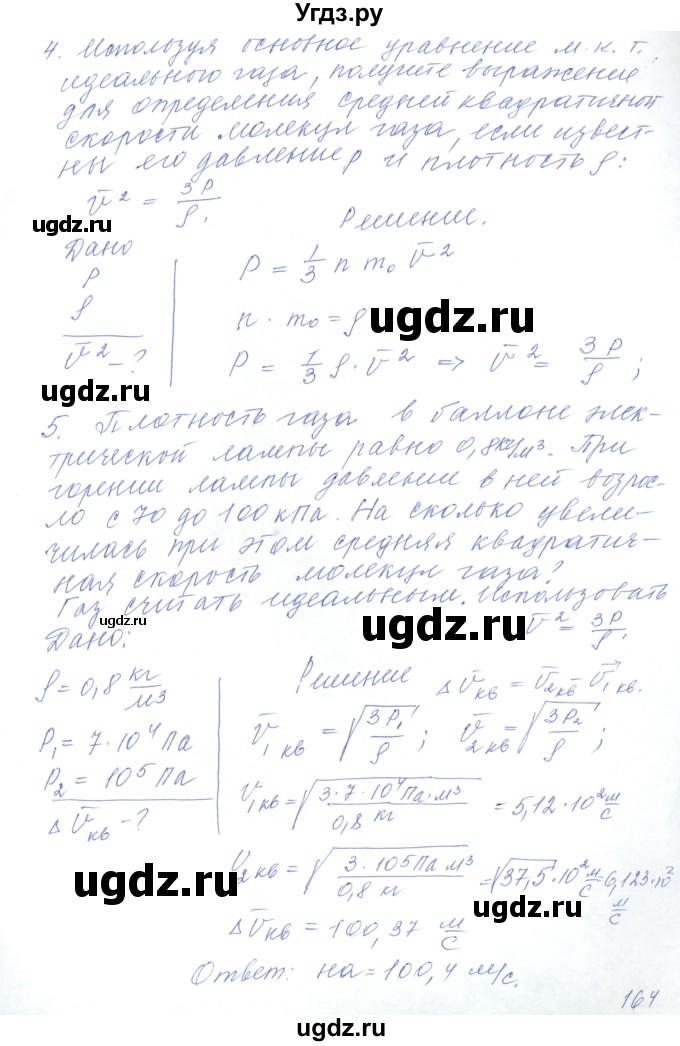 Угдз.ру
4. Используя основное уравнение м.к.т.
идеального газа, получите выражение
для определения средней квадратичной
скорости молекул газа, если извест-
ны его давление p и плотность ρ:
v̄² = 3P/ρ.
Решение.
Дано
P
ρ
v̄² - ?
P = 1/3 n m₀ v̄²
n · m₀ = ρ
ugdz.ru
P = 1/3 ρ · v̄² => v̄² = 3P/ρ ;
ugdz.ru
5. Плотность газа в баллоне элек-
трической лампы равно 0,8 кг/м³. При
горении лампы давлении в ней возрос-
ло с 70 до 100 кПа. На сколько увели-
чилась при этом средняя квадратич-
ная скорость молекул газа?
Газ считать идеальным. Использовать
v̄² = 3P/ρ.
ugdz.ru
ugdz.ru
Дано:
ρ = 0,8 кг/м³
P₁ = 7·10⁴ Па
P₂ = 10⁵ Па
Δv̄кв - ?
Решение Δv̄кв = v̄₂кв v̄₁кв.
v̄₁кв = √(3P₁/ρ) ; v̄₂кв = √(3P₂/ρ) ;
v̄₁кв = √(3·7·10⁴ Па·м³/0,8 кг) = 5,12·10² м/с
v̄₂кв = √(3·10⁵ Па м³/0,8 кг) = √37,5·10² м/с = 6,123·10² м/с
ugdz.ru
ugdz.ru
Δv̄кв = 100,37 м/с
Ответ: на = 100,4 м/с.
164
ugdz.ru